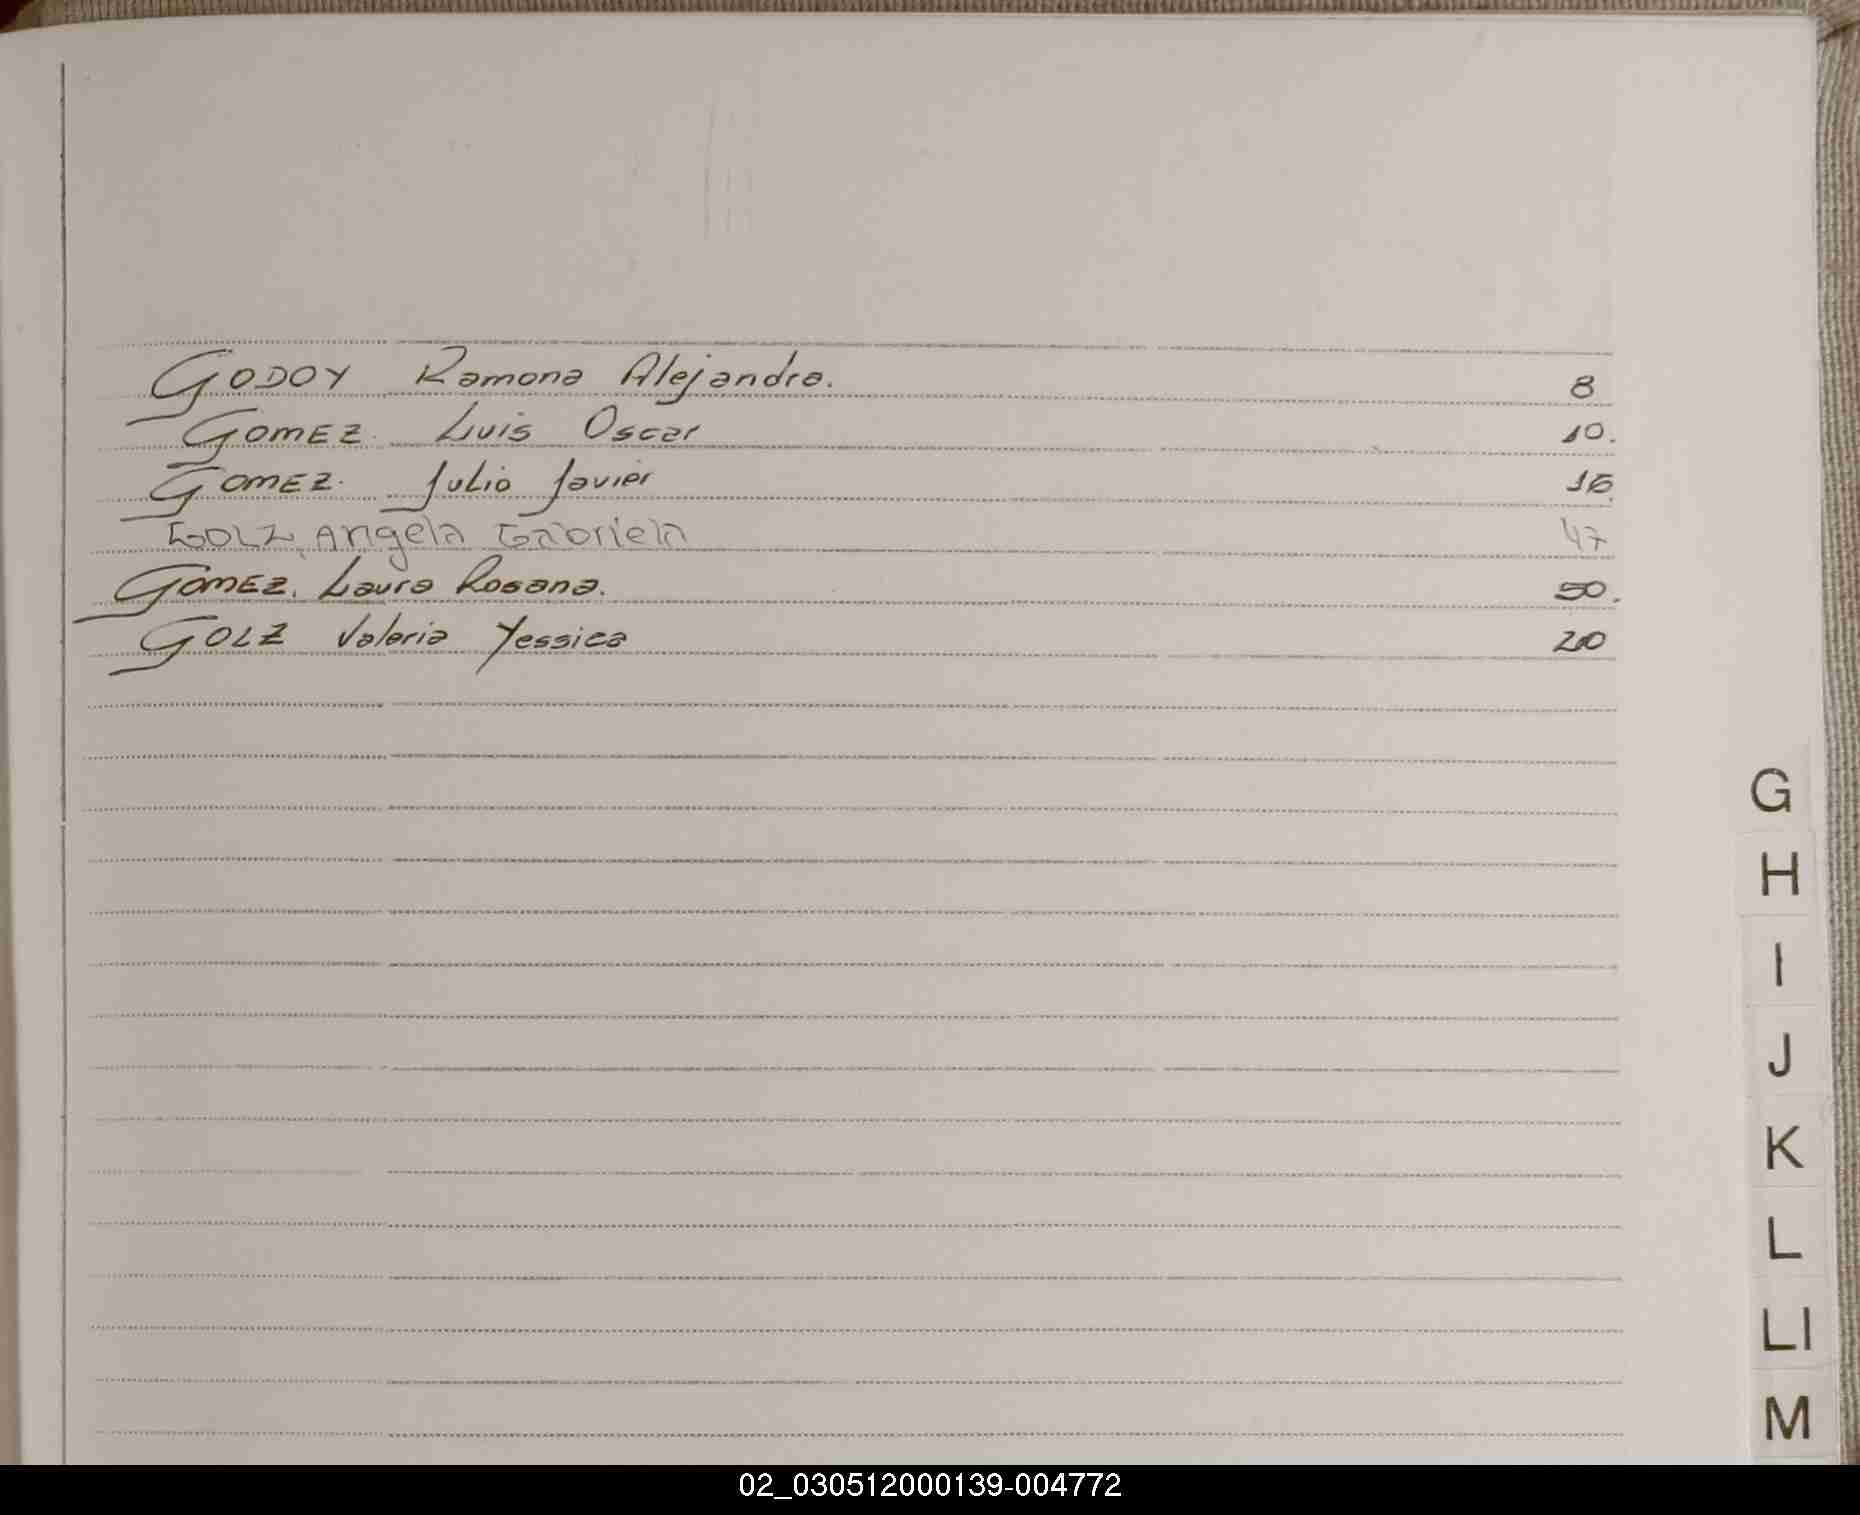 GODOY Ramona Alejandra. 8
GOMEZ. Luis Oscar 10.
GOMEZ. Julio Javier 16.
GOLZ, Angela Gabriela 47
GOMEZ, Laura Rosana. 50.
GOLZ Valeria Yessica 20
G
H
I
J
K
L
Ll
M
02_030512000139-004772